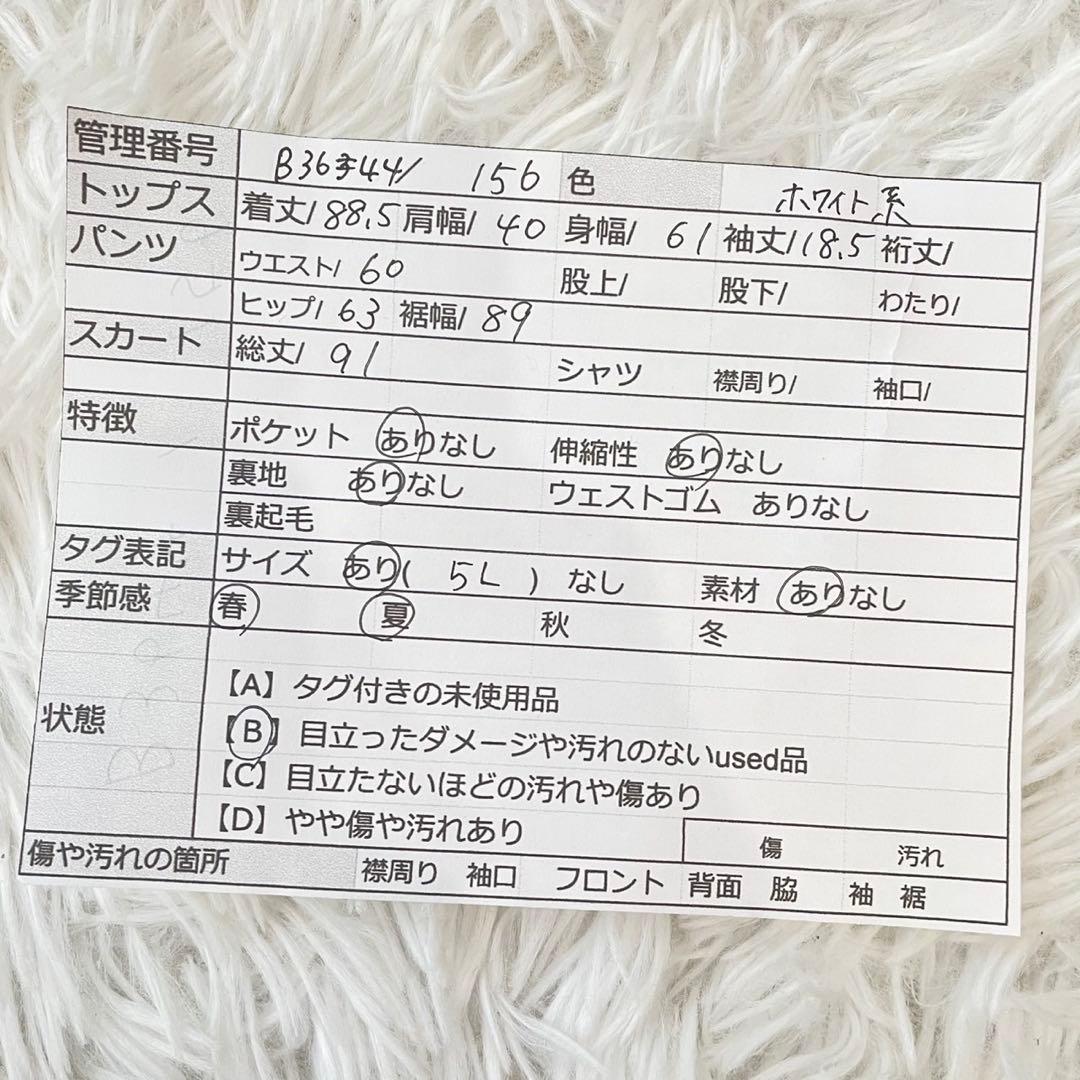 管理番号 B36 44/ 156 色 ホワイト系
トップス 着丈/88.5 肩幅/ 40 身幅/ 61 袖丈/18.5 裄丈/
パンツ ウエスト/ 60 股上/ 股下/ わたり/
ヒップ/ 63 裾幅/ 89
スカート 総丈/ 91 シャツ 襟周り/ 袖口/
特徴 ポケット ありなし 伸縮性 ありなし
裏地 ありなし ウェストゴム ありなし
裏起毛
タグ表記 サイズ あり( 5L ) なし 素材 ありなし
季節感 春 夏 秋 冬
状態
【A】タグ付きの未使用品
【B】目立ったダメージや汚れのないused品
【C】目立たないほどの汚れや傷あり
【D】やや傷や汚れあり
傷 汚れ
傷や汚れの箇所 襟周り 袖口 フロント 背面 脇 袖 裾